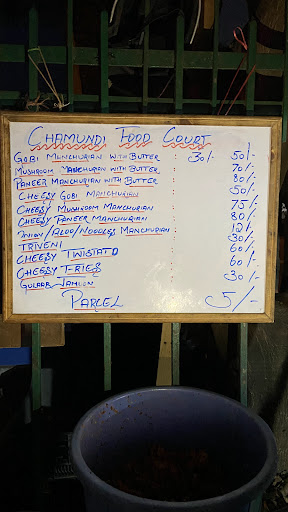 CHAMUNDI FOOD COURT
GOBI MUNCHURIAN WITH BUTTER : 30/- 50/-
MUSHROOM MANCHURIAN WITH BUTTER : 70/-
PANEER MANCHURIAN WITH BUTTER : 80/-
CHEESY GOBI MANCHURIAN 50/-
CHEESY MUSHROOM MANCHURIAN 75/-
CHEESY PANEER MANCHURIAN 80/-
ONION/ALOO/NOODLES MANCHURIAN : 10/-
TRIVENI : 30/-
CHEESY TWISTATO : 60/-
CHEESY FRIES : 60/-
GULAAB JAMOON : 30/-
PARCEL 5/-